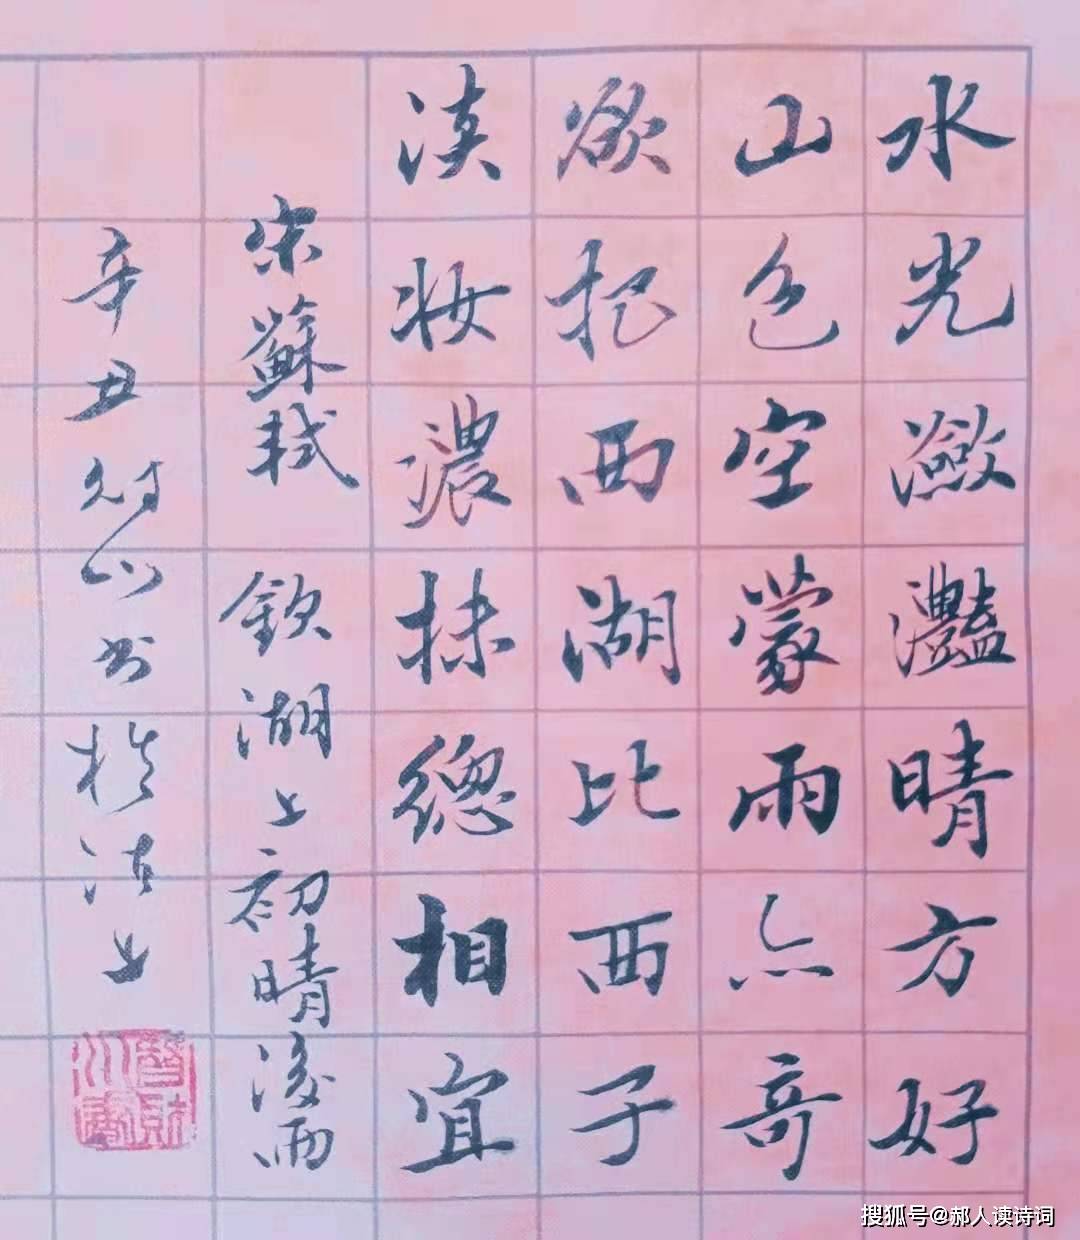 水光瀲灩晴方好
山色空蒙雨亦奇
欲把西湖比西子
淡妆濃抹總相宜
宋蘇軾 飲湖上初晴後雨
辛丑 书於沽上
搜狐号@郝人读诗词